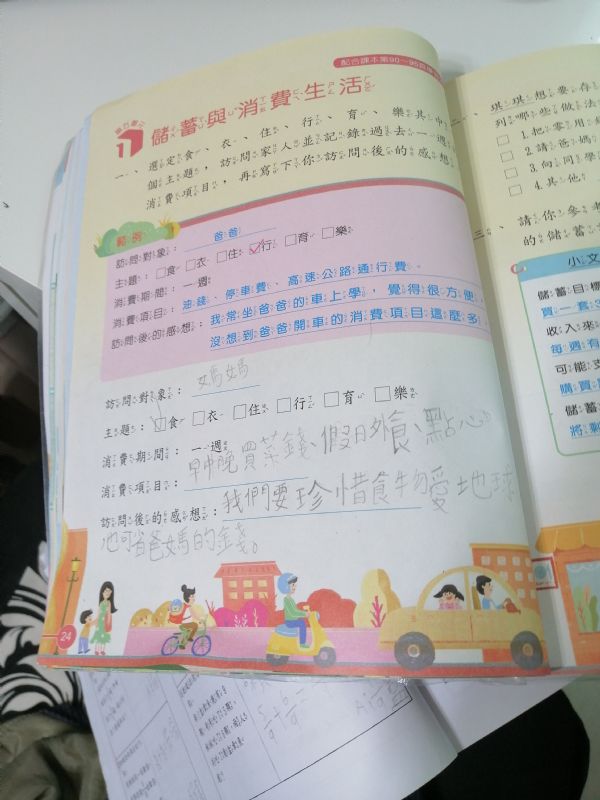 配合課本第90~95頁
能力單元
11 儲蓄與消費生活
一、選定食、衣、住、行、育、樂其中
個主題,訪問家人並記錄過去一週
消費項目,再寫下你訪問後的感想
範例
訪問對象:爸爸
主題:□食 □衣 □住 ☑行 □育 □樂
消費期間:一週
消費項目:油錢、停車費、高速公路通行費。
訪問後的感想:我常坐爸爸的車上學,覺得很方便,
沒想到爸爸開車的消費項目這麼多
訪問對象:媽媽
主題:☑食 □衣 □住 □行 □育 □樂
消費期間:一週
消費項目:早中晚買菜錢、假日外食、點心。
訪問後的感想:我們要珍惜食物愛地球
也可省爸媽的錢。
24
琪琪想要存
列哪些做法
□ 1.把零用
□ 2.請爸媽
□ 3.向同學
□ 4.其他
二、請你參考
的儲蓄
小文
儲蓄目標
買一套3
收入來
每週有
可能支
購買
儲蓄
將剩